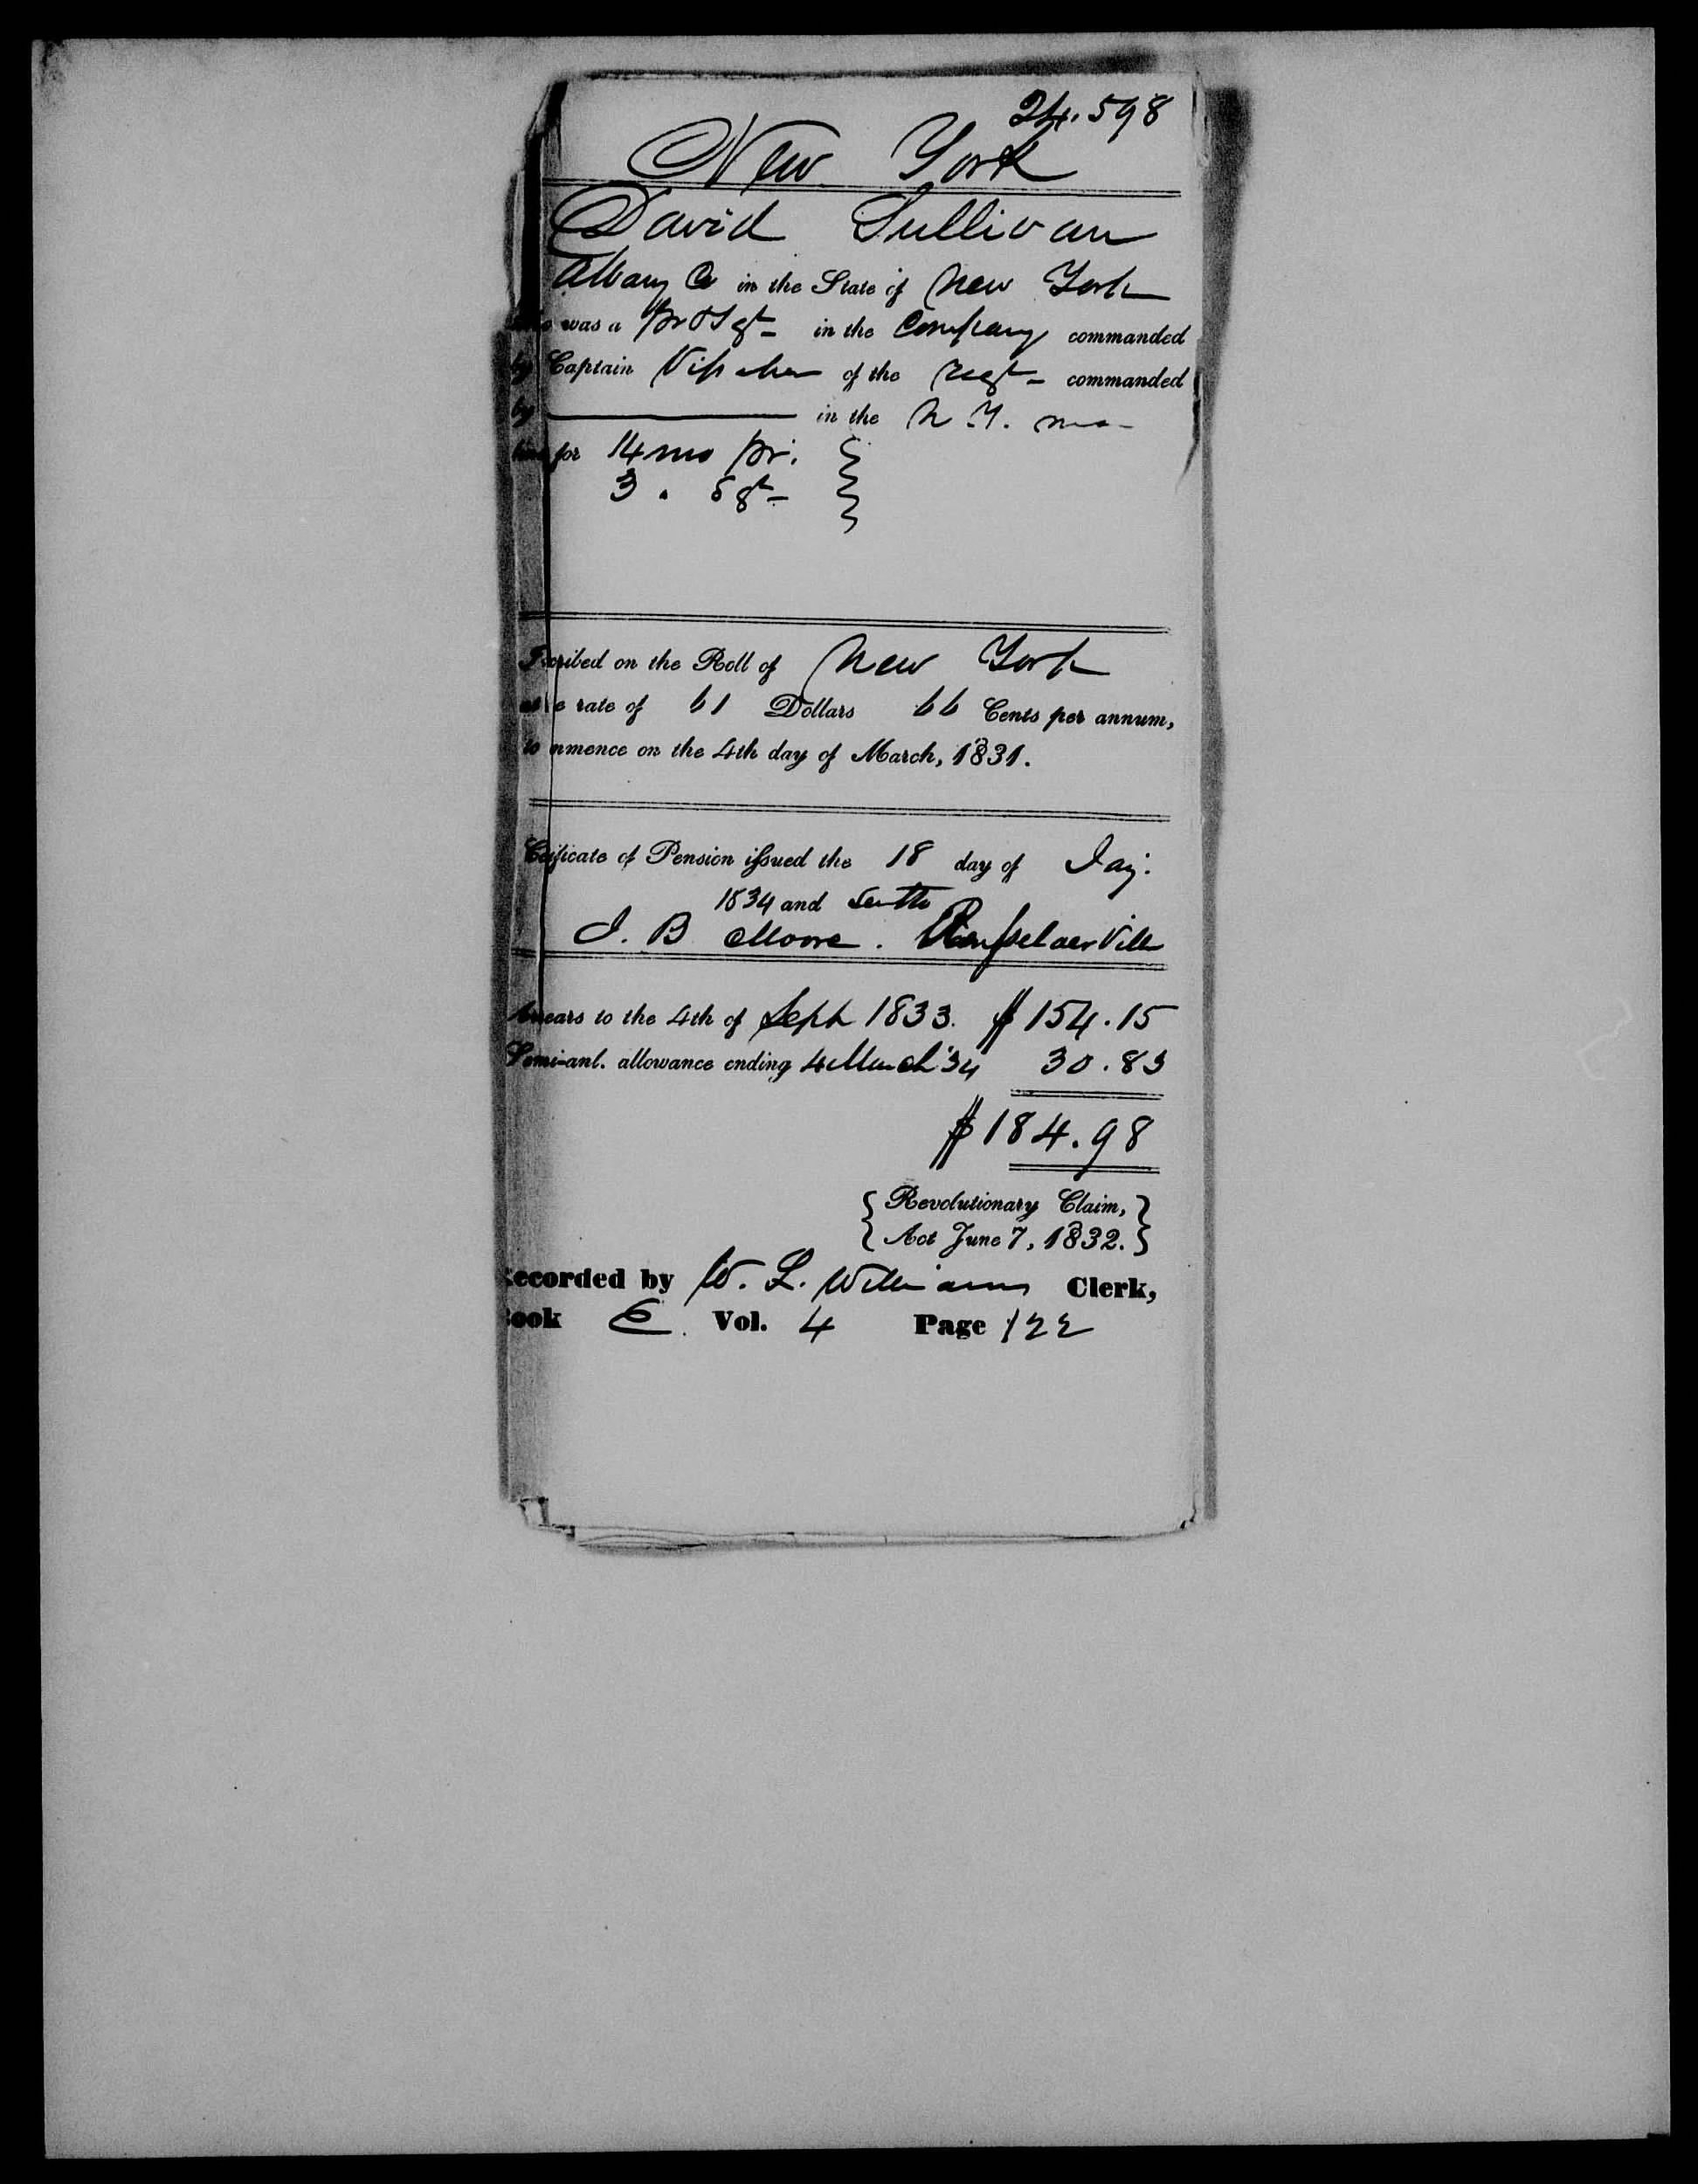 24.598
New York
David Sullivan
Albany Co in the State of New York
who was a Pr & Sgt in the Company commanded
by Captain Visscher of the regt commanded
by in the N.Y.
line for 14 mo pr.
3 " Sgt
Inscribed on the Roll of New York
at the rate of 61 Dollars 66 Cents per annum,
to commence on the 4th day of March, 1831.
Certificate of Pension issued the 18 day of Jay.
1834 and sent to
J. B Moore. Rensselaer Ville
Arrears to the 4th of Sept 1833. $154.15
Semi-anl. allowance ending 4 March '34 30.83
$184.98
{Revolutionary Claim,}
{Act June 7, 1832.}
Recorded by W. L. Williams Clerk,
Book E. Vol. 4 Page 122